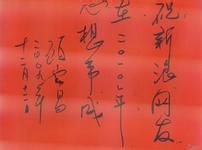 祝新浪网友
在二〇一〇年
心想事成
二〇〇九年
十二月十二日